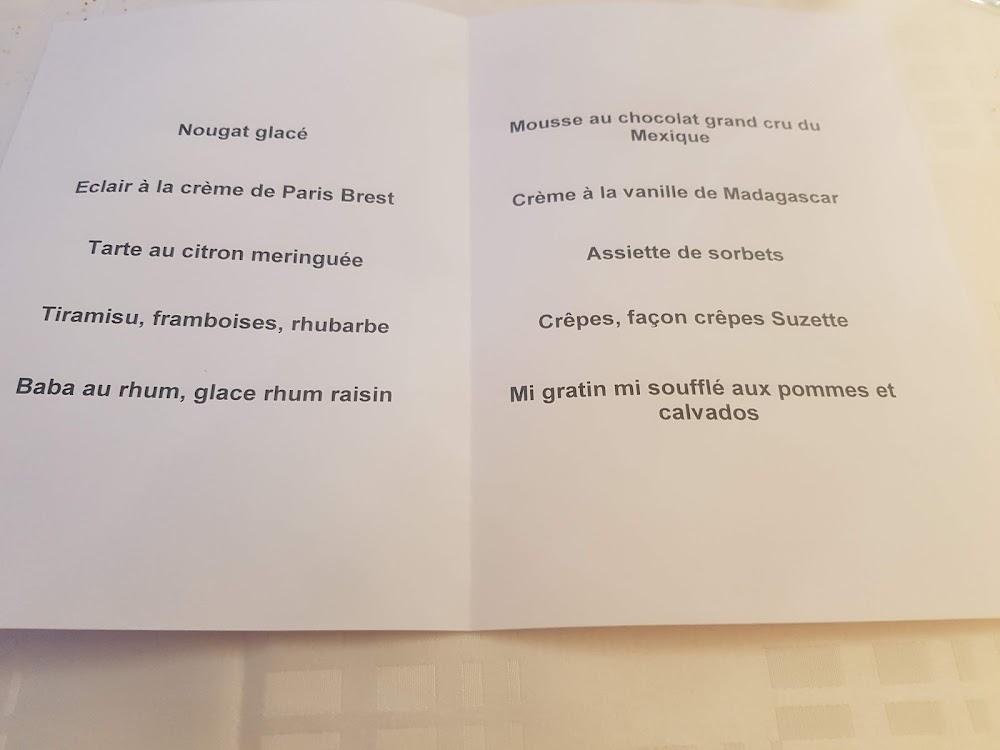 Nougat glacé
Eclair à la crème de Paris Brest
Tarte au citron meringuée
Tiramisu, framboises, rhubarbe
Baba au rhum, glace rhum raisin
Mousse au chocolat grand cru du
Mexique
Crème à la vanille de Madagascar
Assiette de sorbets
Crêpes, façon crêpes Suzette
Mi gratin mi soufflé aux pommes et
calvados